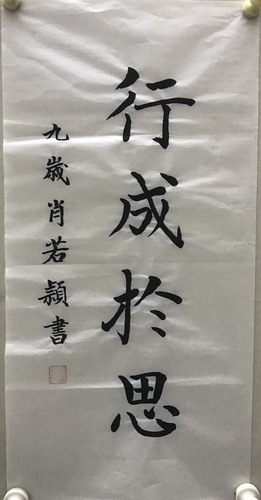 行成於思
九歲肖若穎書